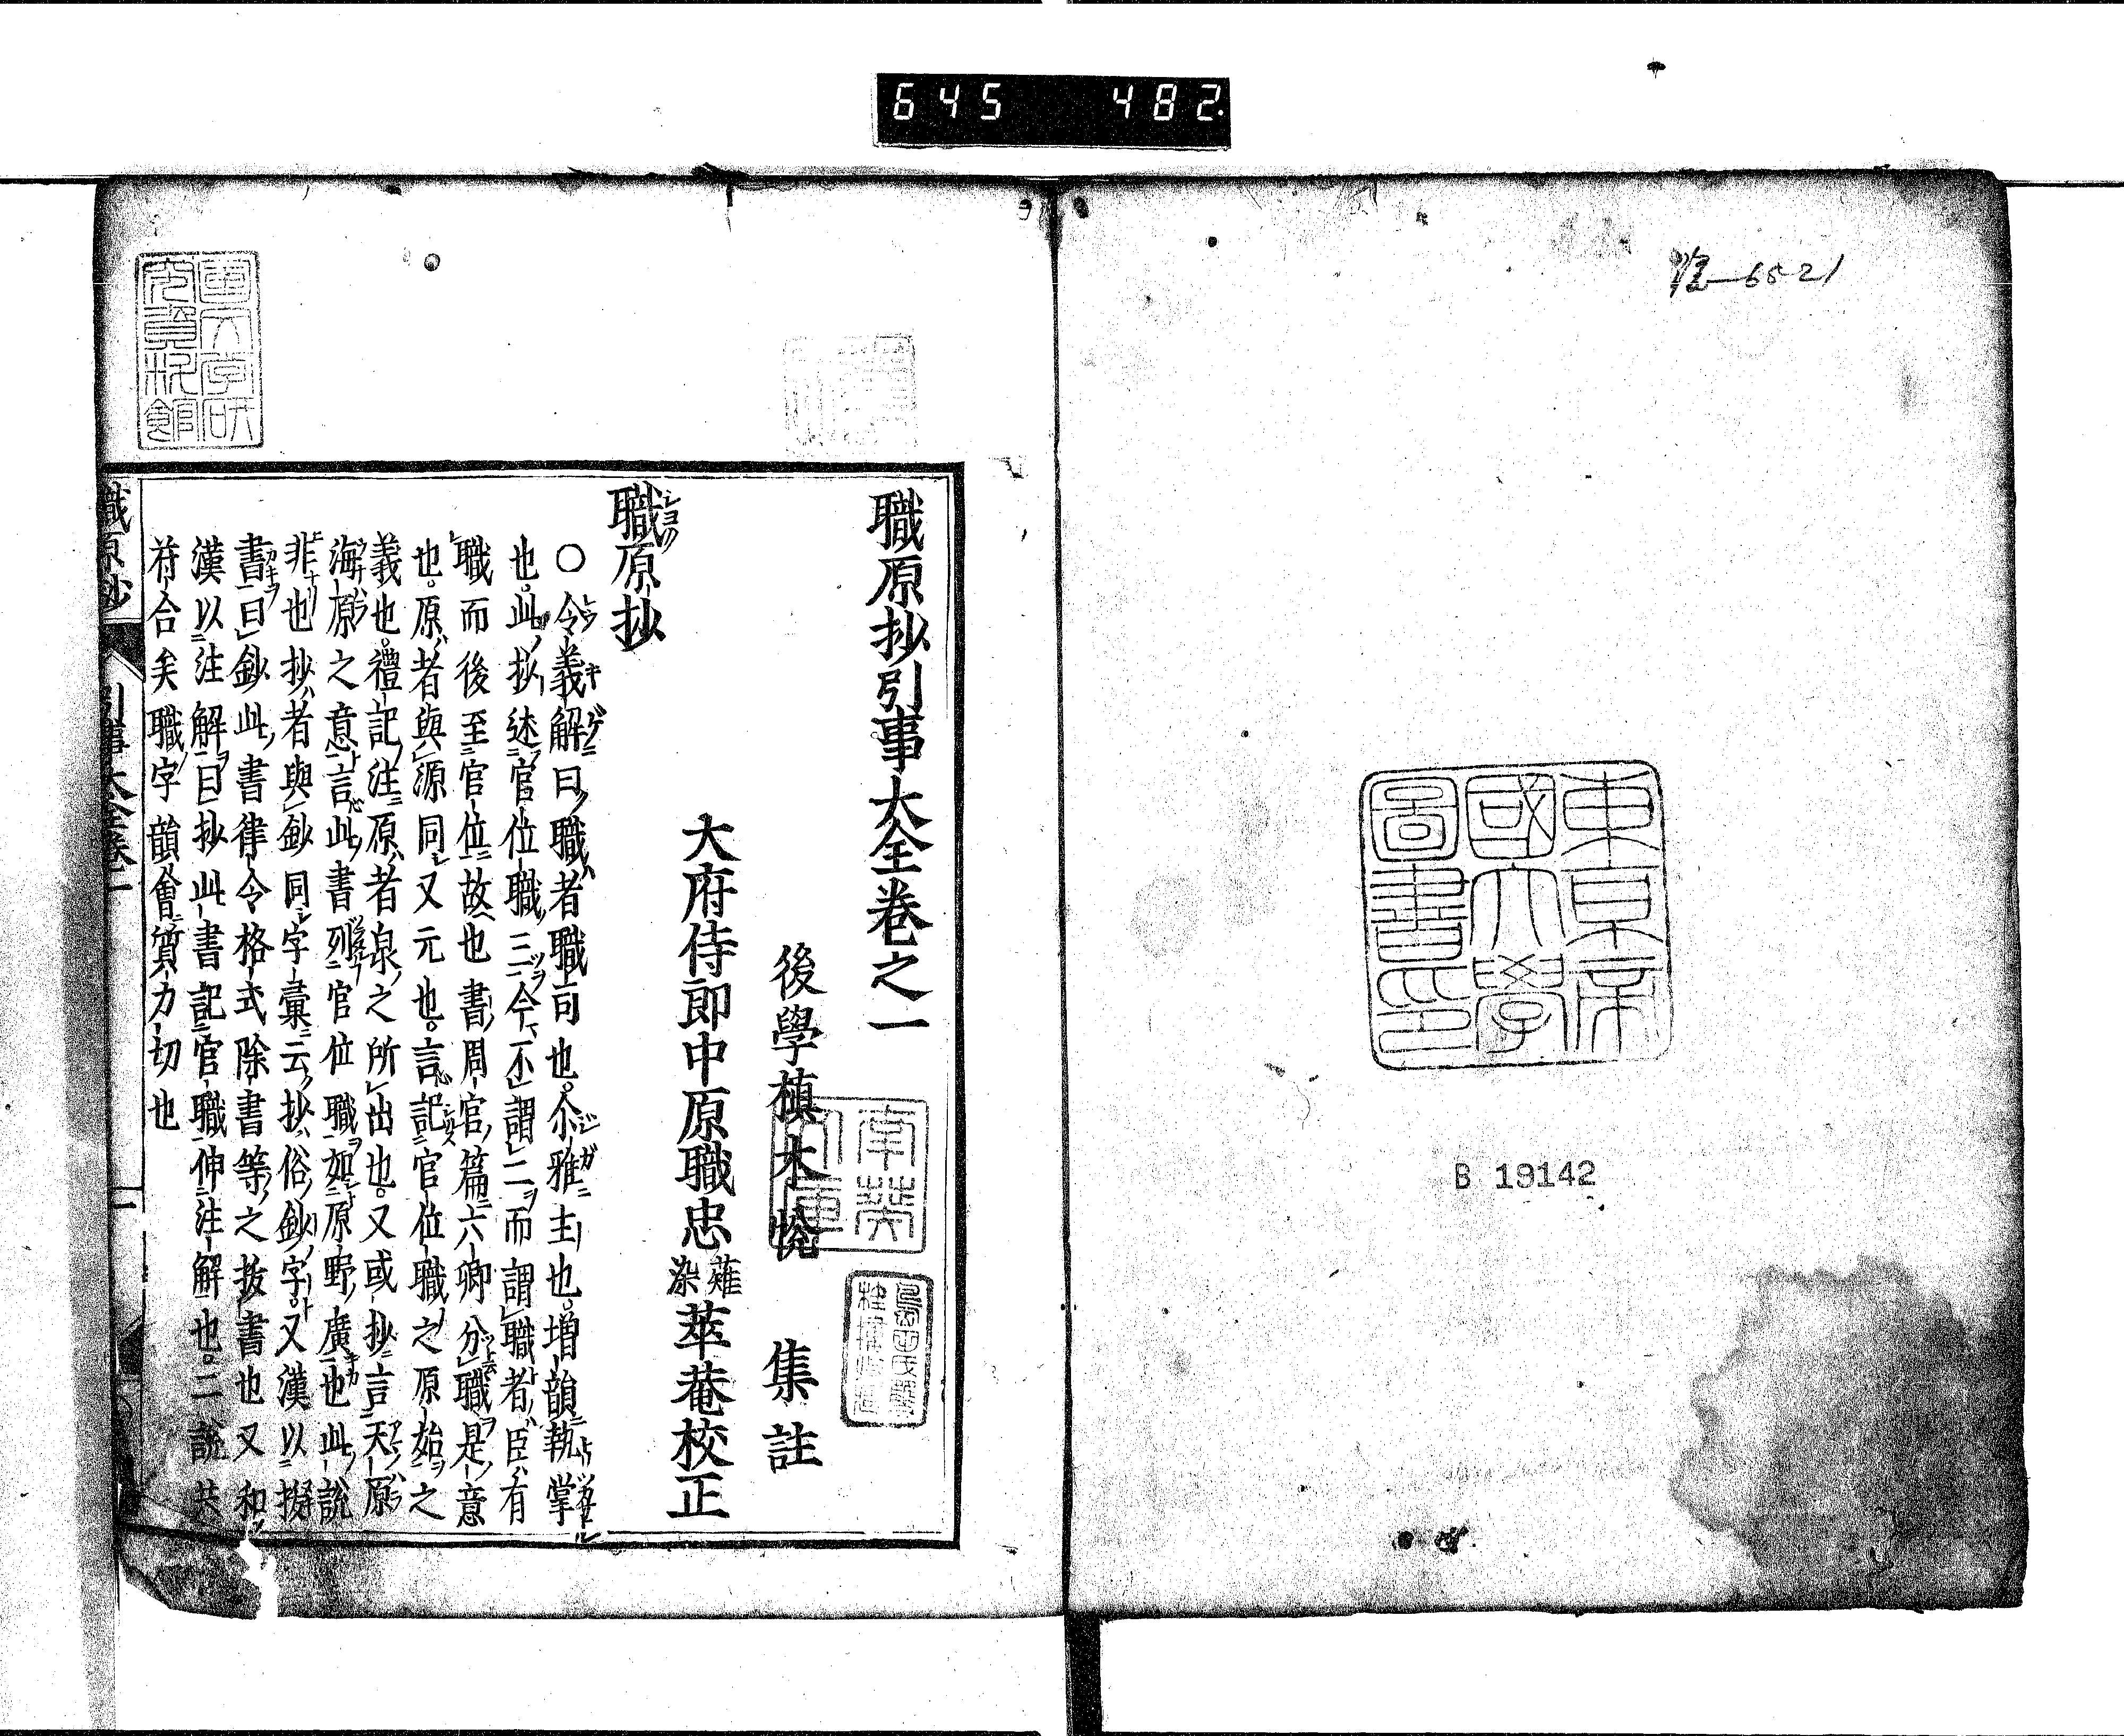 645 482.
准-6521
東京帝
國大學
圖書印
B 19142
職原抄引事大全卷之一
後學槙木悗 集註
大府侍郎中原職忠薙染萃菴校正
職原抄
○令義解曰職者職司也尒雅主也増韻執掌
也此抄述官位職三今不謂二而謂職者臣有
職而後至官位故也書周官篇六卿分職是意
也原者與源同又元也言記官位職之原始之
義也禮記注原者泉之所出也又或抄言天原
海原之意言此書列官位職如原野廣也此説
非也抄者與鈔同字彙云抄俗鈔字又漢以擬
書曰鈔此書律令格式除書等之拔書也又和
漢以注解曰抄此書記官職伸注解也二説共
符合矣職字韻會質力切也
職原抄 引事大全卷一 一
國文學研
究資料館